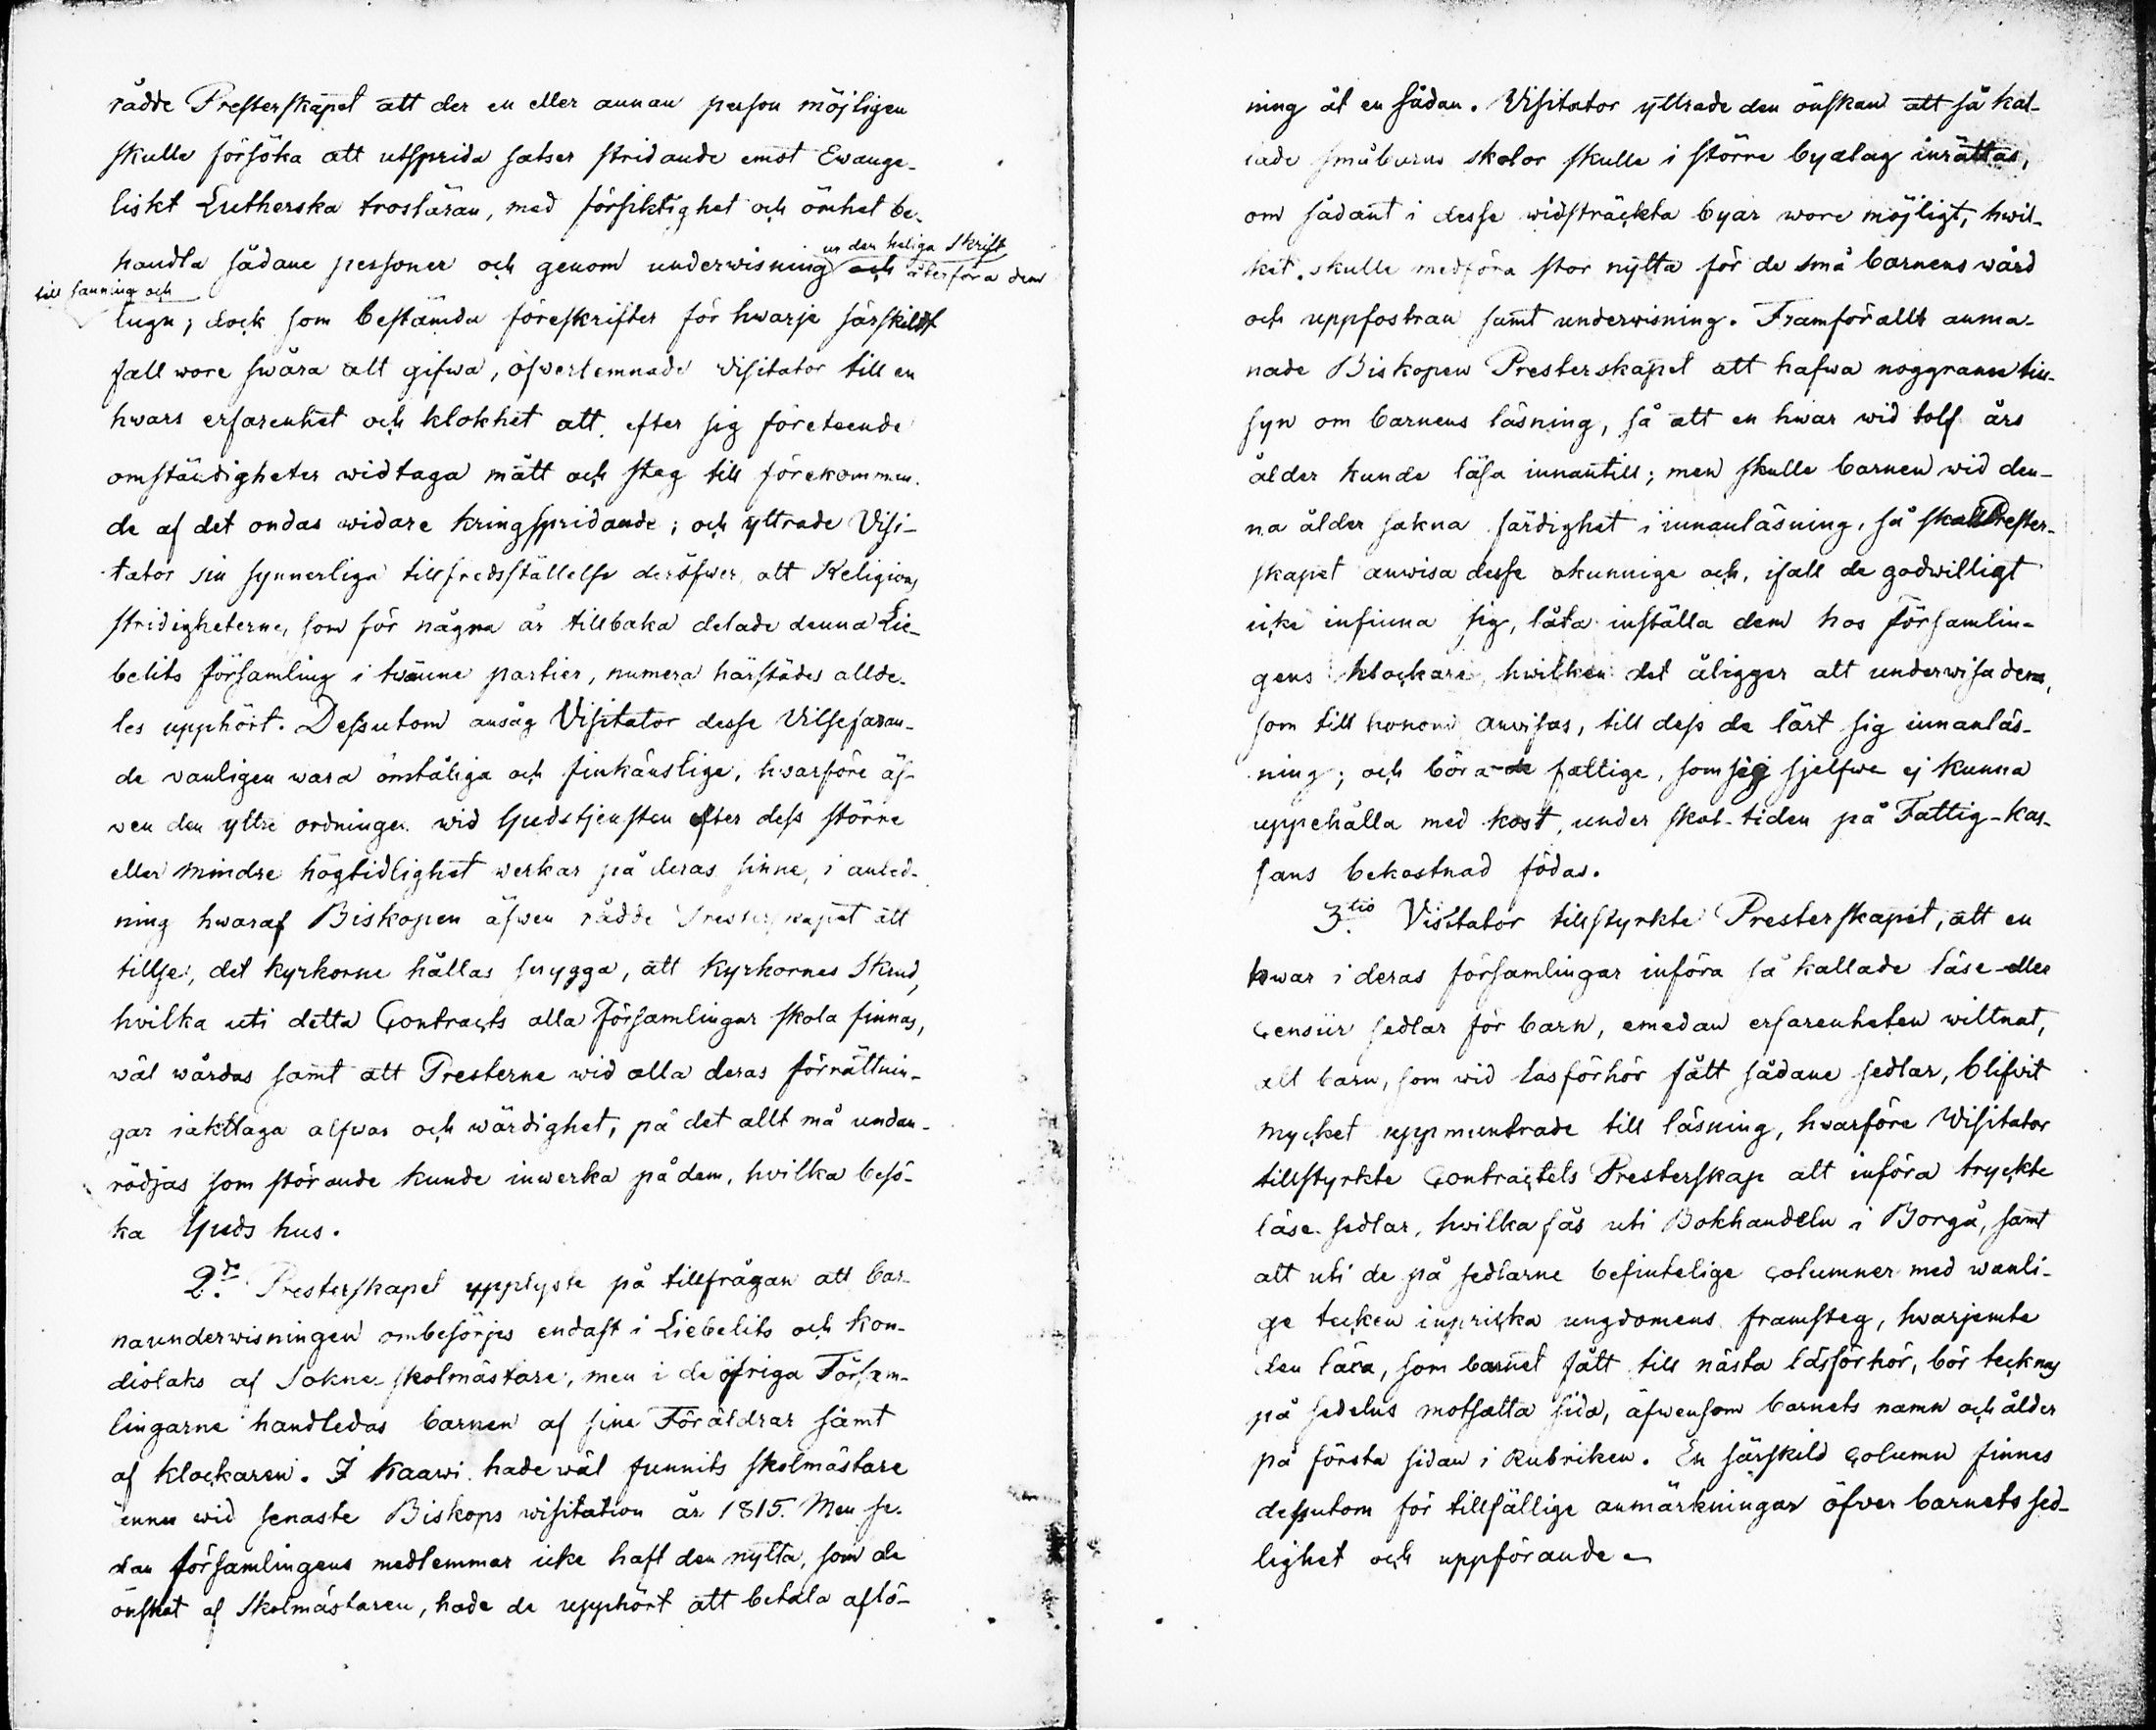 rådde Presterskapet att der en eller annan person möjligen
skulle försöka att utsprida satser stridande emot Evange-
liskt Lutherska trosläran, med försiktighet och ömhet be-
handla sådane personer och genom underwisning ur den heliga Skrift och återföra dem
till sanning och
lugn; dock som bestämda föreskrifter för hwarje särskildt
fall wore swåra att gifwa, öfverlemnade Visitator till en
hwars erfarenhet och klokhet att efter sig företeende
omständigheter widtaga mått och steg till förekomman-
de af det ondas widare kringspridande; och yttrade Visi-
tator sin synnerliga tillfredsställelse deröfwer, att Religions
stridigheterne, som för någna år tillbaka delade denna Lie-
belits församling i twänne partier, numera härstädes allde-
les upphört. Dessutom ansåg Visitator desse Vilsefaran-
de vanligen wara ömtåliga och finkänslige, hvarföre äf-
ven den yttre ordningen wid Gudstjensten efter dess större
eller mindre högtidlighet werkar på deras sinne, i anled-
ning hwaraf Biskopen äfwen rådde Presterskapet att
tillse, det kyrkorne hållas snygga, att Kyrkornes Skrud,
hvilka uti detta Contracts alla Församlingar skola finnas,
wäl wårdas samt att Presterne wid alla deras förrättnin-
gar iakttaga alfwar och wärdighet, på det allt må undan-
rödjas som störande kunde inwerka på dem, hvilka besö-
ka Guds hus.
2do. Presterskapet upplyste på tillfrågan att bar-
naunderwisningen ombesörjes endast i Liebelits och Kon-
diolaks af Sokne-skolmästare, men i de öfriga Försam-
lingarne handledas barnen af sine Föräldrar samt
af klockaren. I Kaawi hade wäl funnits skolmästare
ännu wid senaste Biskops wisitation år 1815. Men se-
dan församlingens medlemmar icke haft den nytta, som de
önskat af Skolmästaren, hade de upphört att betala aflö-
ning åt en sådan. Visitator yttrade den önskan att så kal-
lade småbarns skolor skulle i större byalag inrättas,
om sådant i desse widsträckta byar wore möjligt, hwil-
ket skulle medföra stor nytta för de små barnens wård
och uppfostran samt underwisning. Framförallt anma-
nade Biskopen Presterskapet att hafwa noggrann till-
syn om barnens läsning, så att en hwar wid tolf års
ålder kunde läsa innantill; men skulle barnen wid den-
na ålder sakna färdighet i innanläsning, så skall Prester-
skapet anwisa desse okunnige och, ifall de godwilligt
icke infinna sig, låta inställa dem hos församlin-
gens klockare, hwilken det åligger att underwisa dem,
som till honom anvisas, till dess de lärt sig innanläs-
ning; och böra de fattige, som sig sjelfwe ej kunna
uppehålla med kost, under skol-tiden på Fattig-kas-
sans bekostnad födas.
3tio. Visitator tillstyrkte Presterskapet, att en
hwar i deras församlingar införa så kallade läse- eller
Censür sedlar för barn, emedan erfarenheten wittnat,
att barn, som wid läsförhör fått sådane sedlar, blifvit
mycket uppmuntrade till läsning, hvarföre Visitator
tillstyrkte Contractets Presterskap att införa tryckte
läse-sedlar, hwilka fås uti Bokhandeln i Borgå, samt
att uti de på sedlarne befintelige columner med wanli-
ge tecken inpricka ungdomens framsteg, hwarjemte
den läxa, som barnet fått till nästa läsförhör, bör tecknas
på sedelns motsatta sida, äfwensom barnets namn och ålder
på första sidan i Rubriken. En särskild column finnes
dessutom för tillfällige anmärkningar öfver barnets sed-
lighet och uppförande.